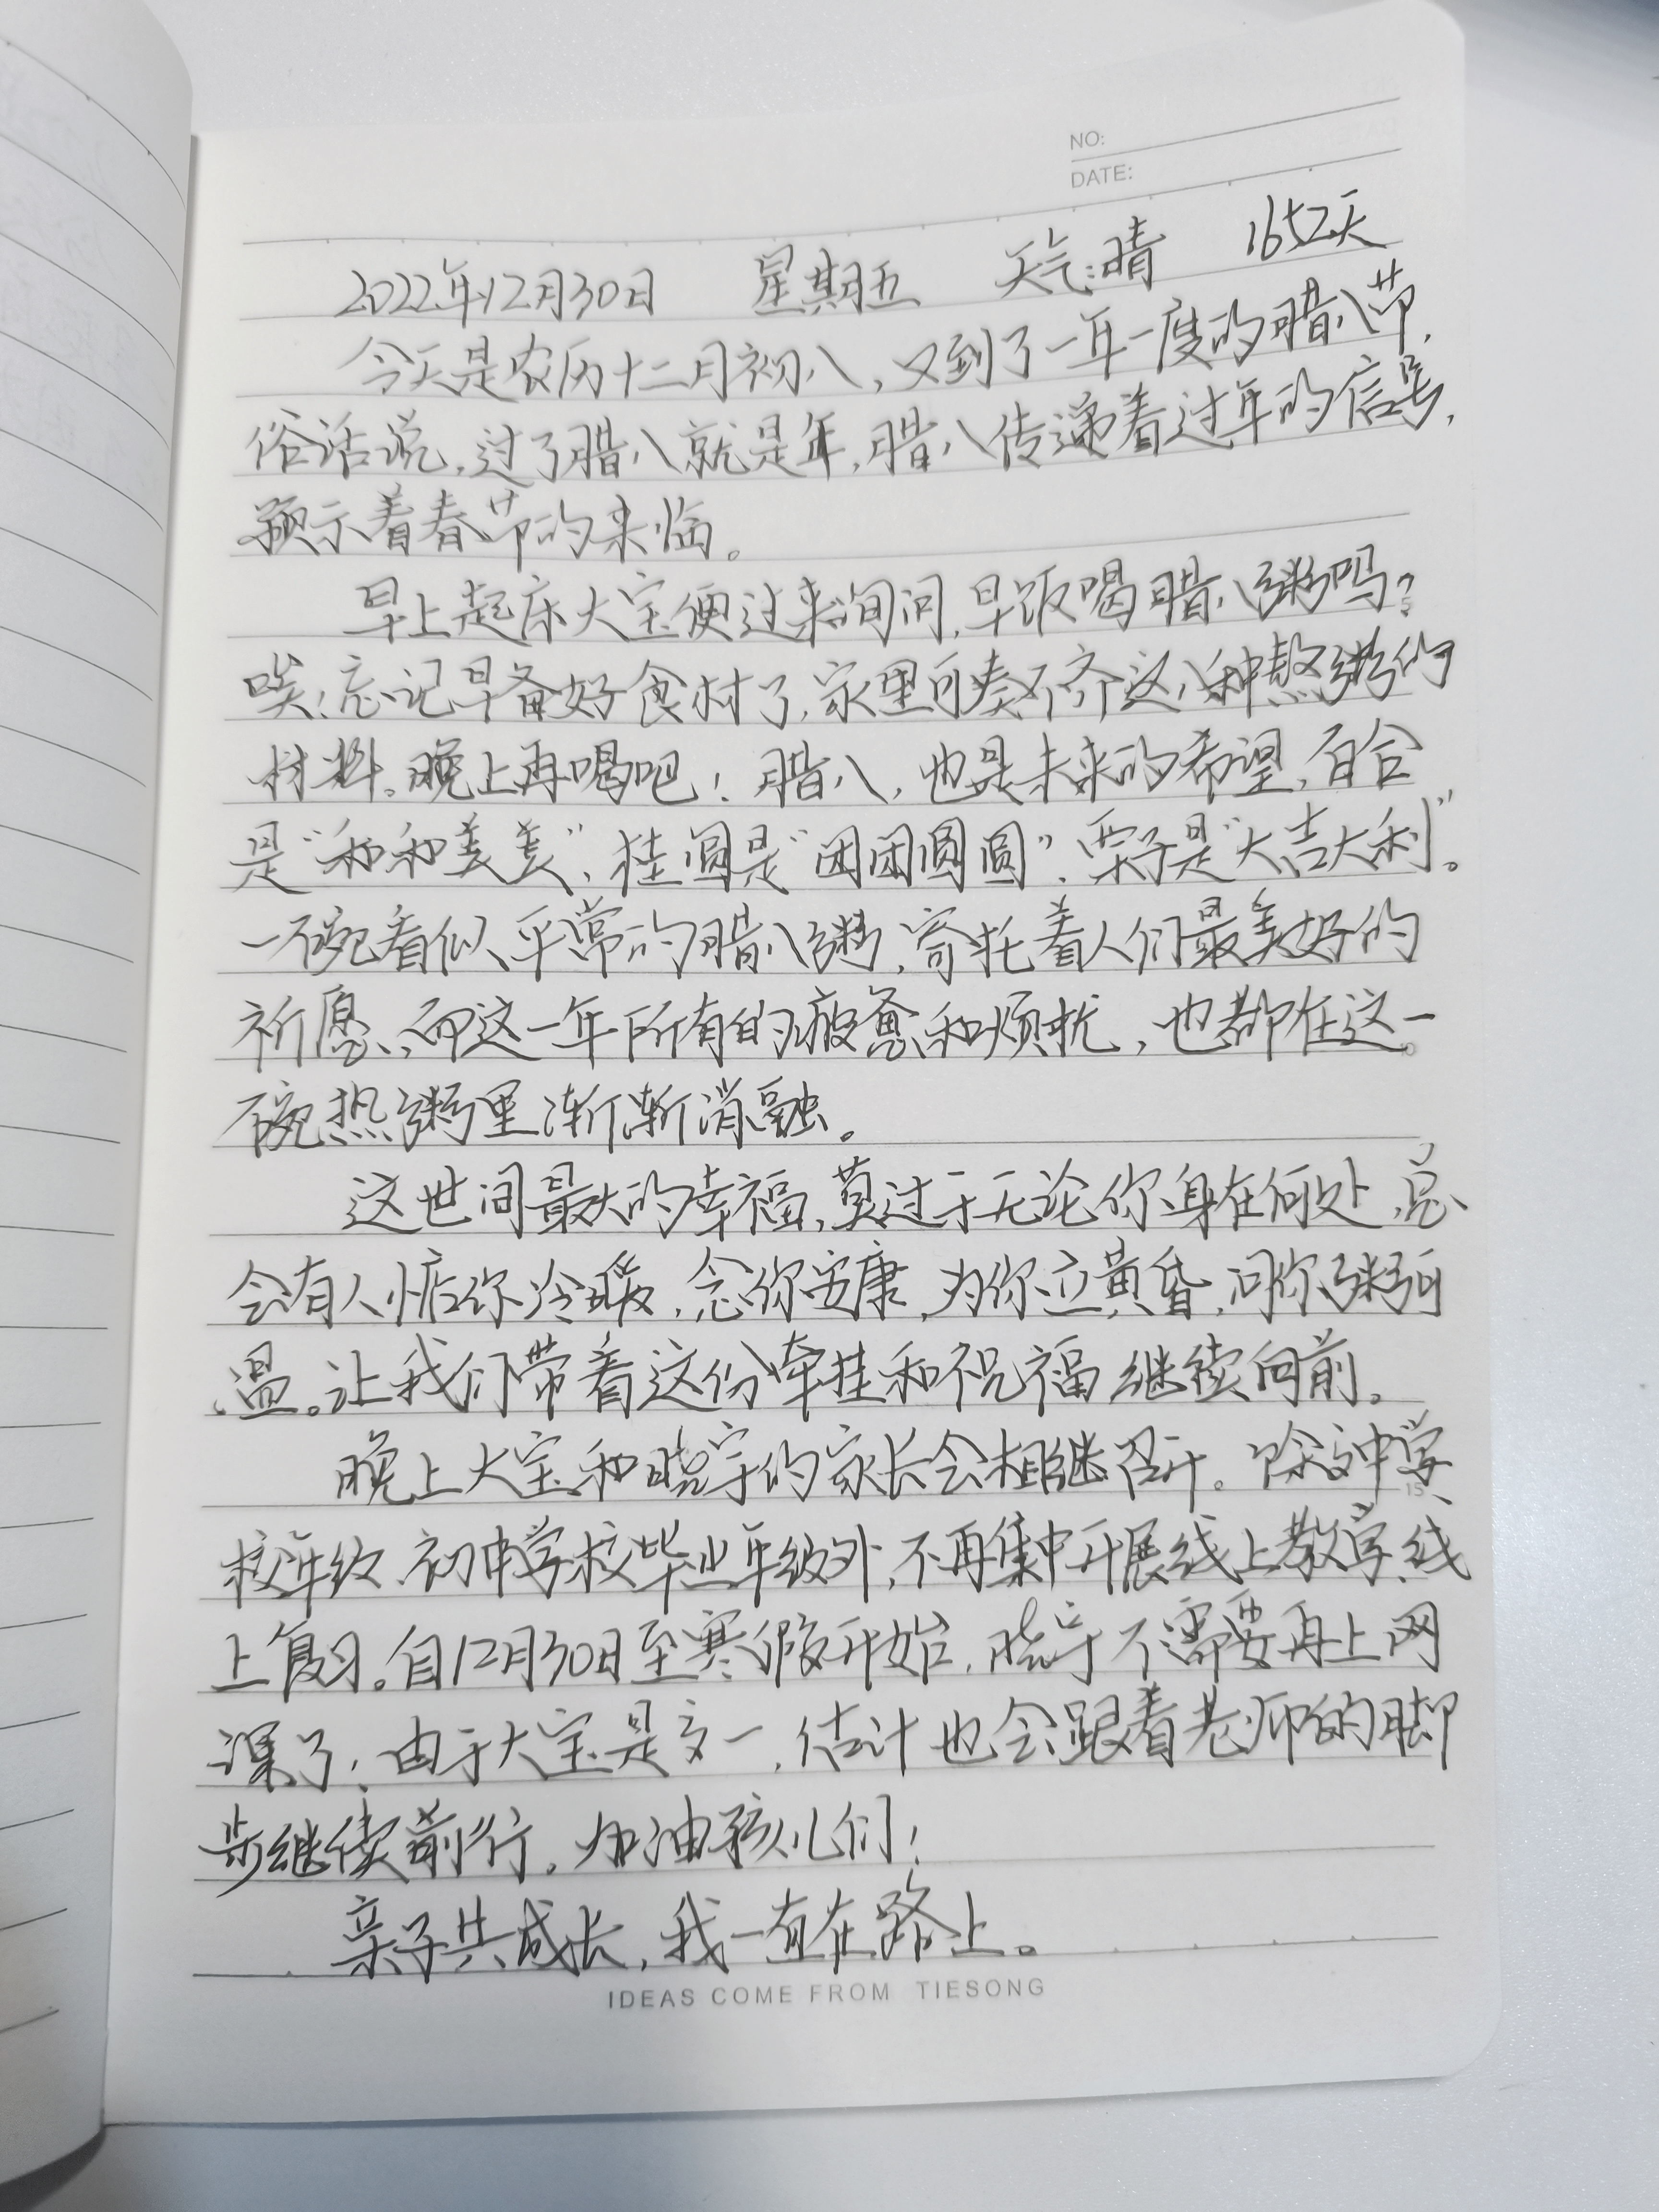 NO:
DATE:
2022年12月30日 星期五 天气:晴 1652天
今天是农历十二月初八,又到了一年一度的腊八节,
俗话说,过了腊八就是年,腊八传递着过年的信号,
预示着春节的来临。
早上起床大宝便过来询问,早饭喝腊八粥吗?
唉!忘记早备好食材了,家里可凑不齐这八种熬粥的
材料。晚上再喝吧!腊八,也是未来的希望,百合
是“和和美美”、桂圆是“团团圆圆”、栗子是“大吉大利”。
一碗看似平常的腊八粥,寄托着人们最美好的
祈愿,而这一年所有的疲惫和烦扰,也都在这一
碗热粥里渐渐消融。
这世间最大的幸福,莫过于无论你身在何处,总
会有人惦你冷暖,念你安康,为你立黄昏,问你粥可
温。让我们带着这份牵挂和祝福继续向前。
晚上大宝和晓宇的家长会相继召开。除高中学
校年级、初中学校毕业年级外,不再集中开展线上教学、线
上复习。自12月30日至寒假开始,晓宇不需要再上网
课了;由于大宝是高一,估计也会跟着老师的脚
步继续前行。加油孩儿们!
亲子共成长,我一直在路上。
IDEAS COME FROM TIESONG
5
10
15